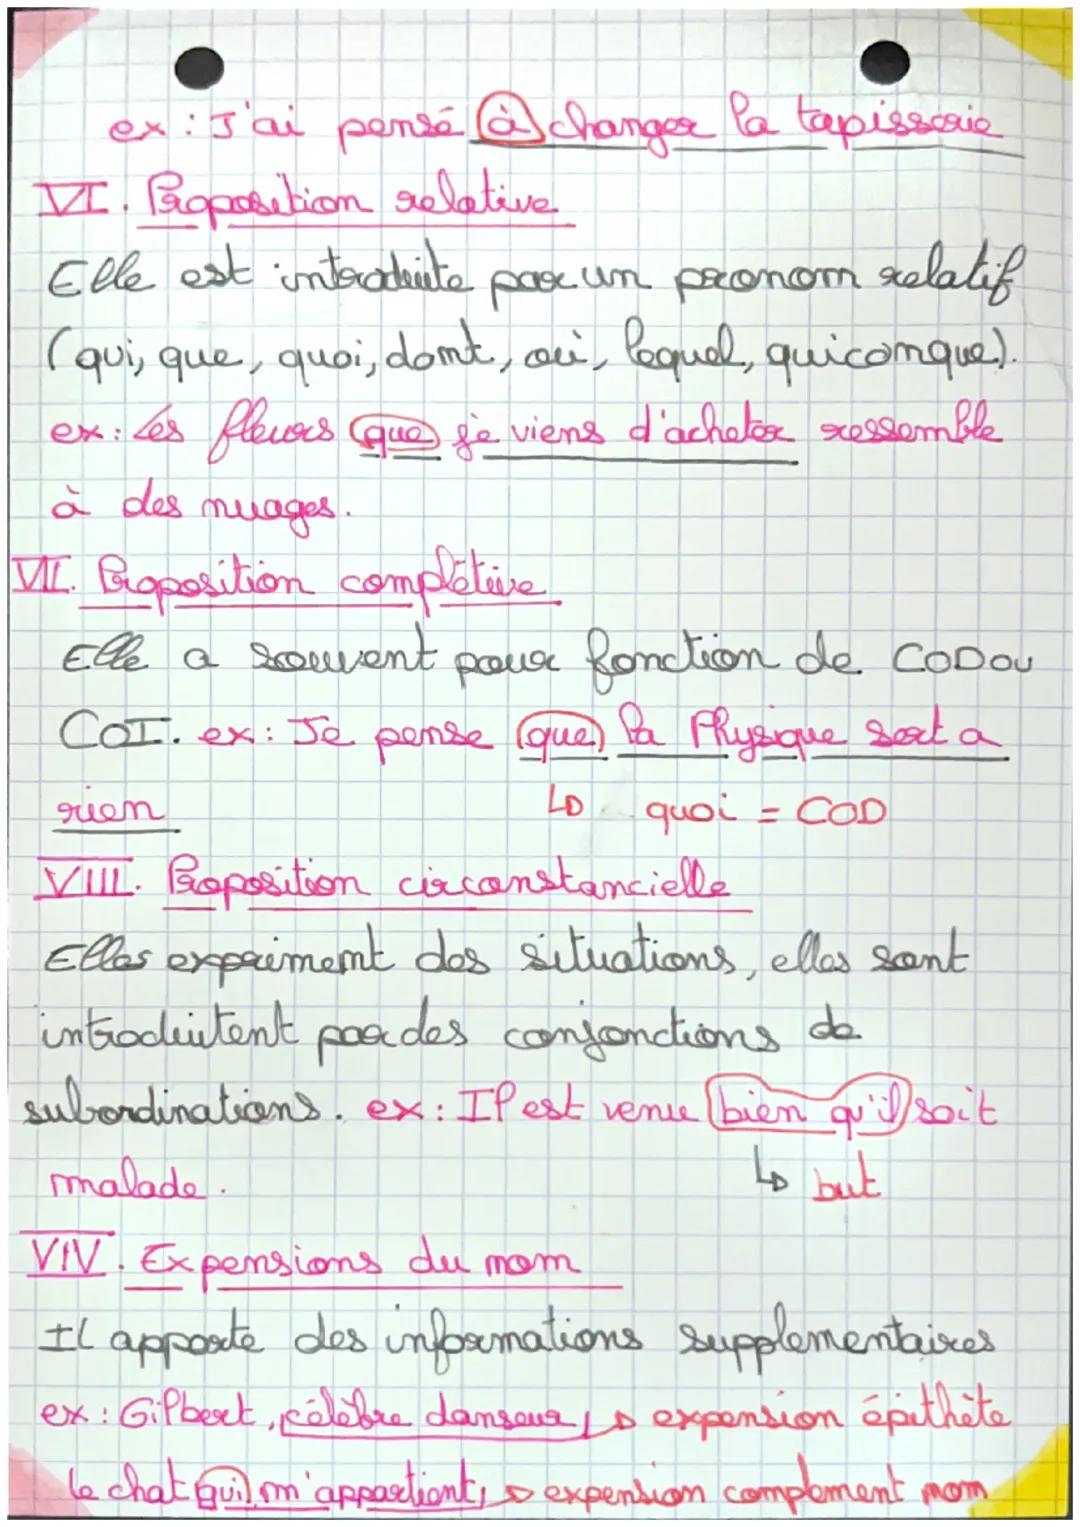 ex : J'ai pensé à changer la tapisserie
VI. Proposition relative
Elle est introduite par un pronom relatif
(qui, que, quoi, dont, où, lequel, quiconque).
ex : Les fleurs que je viens d'acheter ressemble
à des nuages.
VII. Proposition complétive
Elle a souvent pour fonction de COD ou
COI. ex : Je pense que la Physique sert a
rien
↳ quoi = COD
VIII. Proposition circonstancielle
Elles expriment des situations, elles sont
introduitent par des conjonctions de
subordinations. ex : Il est venu bien qu'il soit
malade.
↳ but
VIV. Expensions du nom
Il apporte des informations supplementaires
ex : Gilbert, célèbre danseur, → expension épithète
le chat qui m'appartient, → expension complement nom